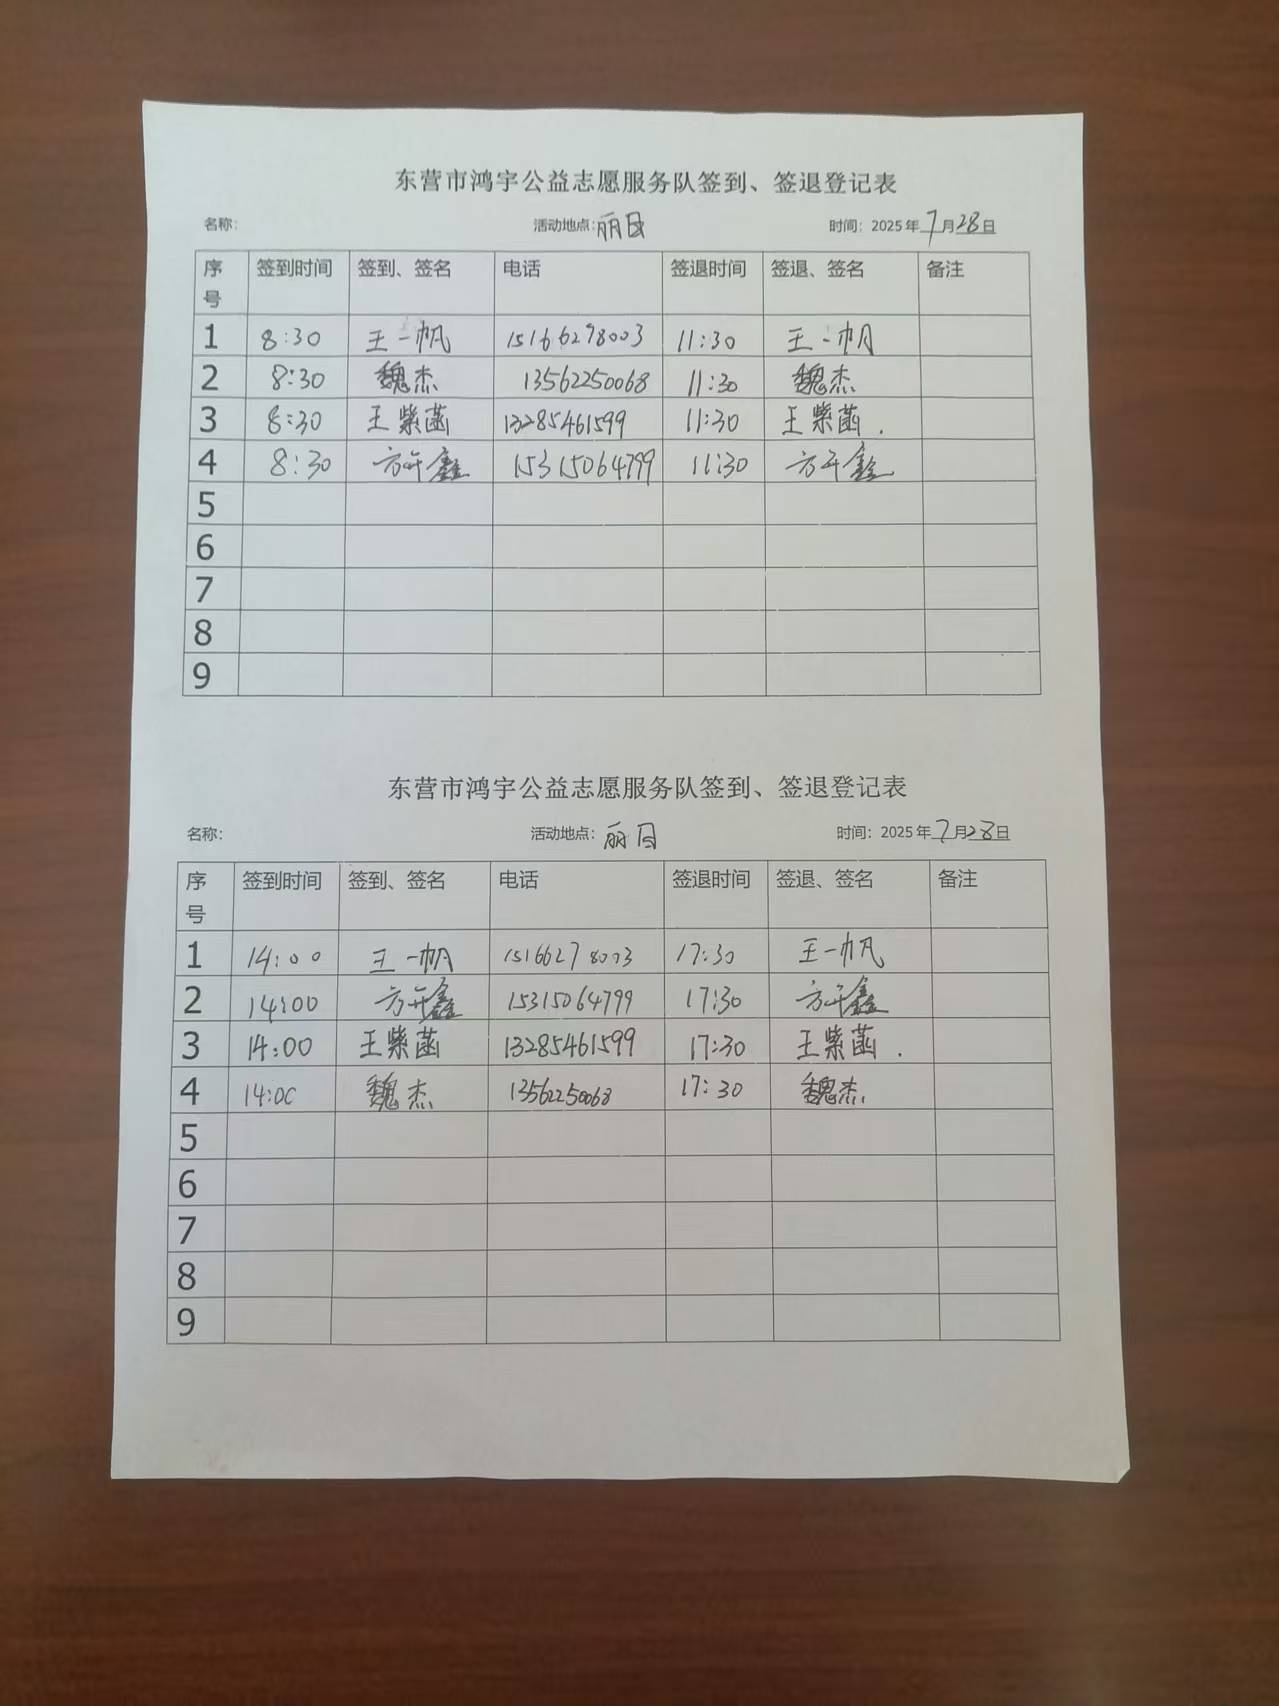 东营市鸿宇公益志愿服务队签到、签退登记表
名称： 活动地点：丽日 时间：2025年7月28日
序号 签到时间 签到、签名 电话 签退时间 签退、签名 备注
1 8:30 王一帆 15166278003 11:30 王一帆
2 8:30 魏杰 13562250068 11:30 魏杰
3 8:30 王紫菡 13285461599 11:30 王紫菡.
4 8:30 方开鑫 15315064799 11:30 方开鑫
5
6
7
8
9
东营市鸿宇公益志愿服务队签到、签退登记表
名称： 活动地点：丽日 时间：2025年7月28日
序号 签到时间 签到、签名 电话 签退时间 签退、签名 备注
1 14:00 王一帆 15166278003 17:30 王一帆
2 14:00 方开鑫 15315064799 17:30 方开鑫
3 14:00 王紫菡 13285461599 17:30 王紫菡.
4 14:00 魏杰 13562250068 17:30 魏杰
5
6
7
8
9